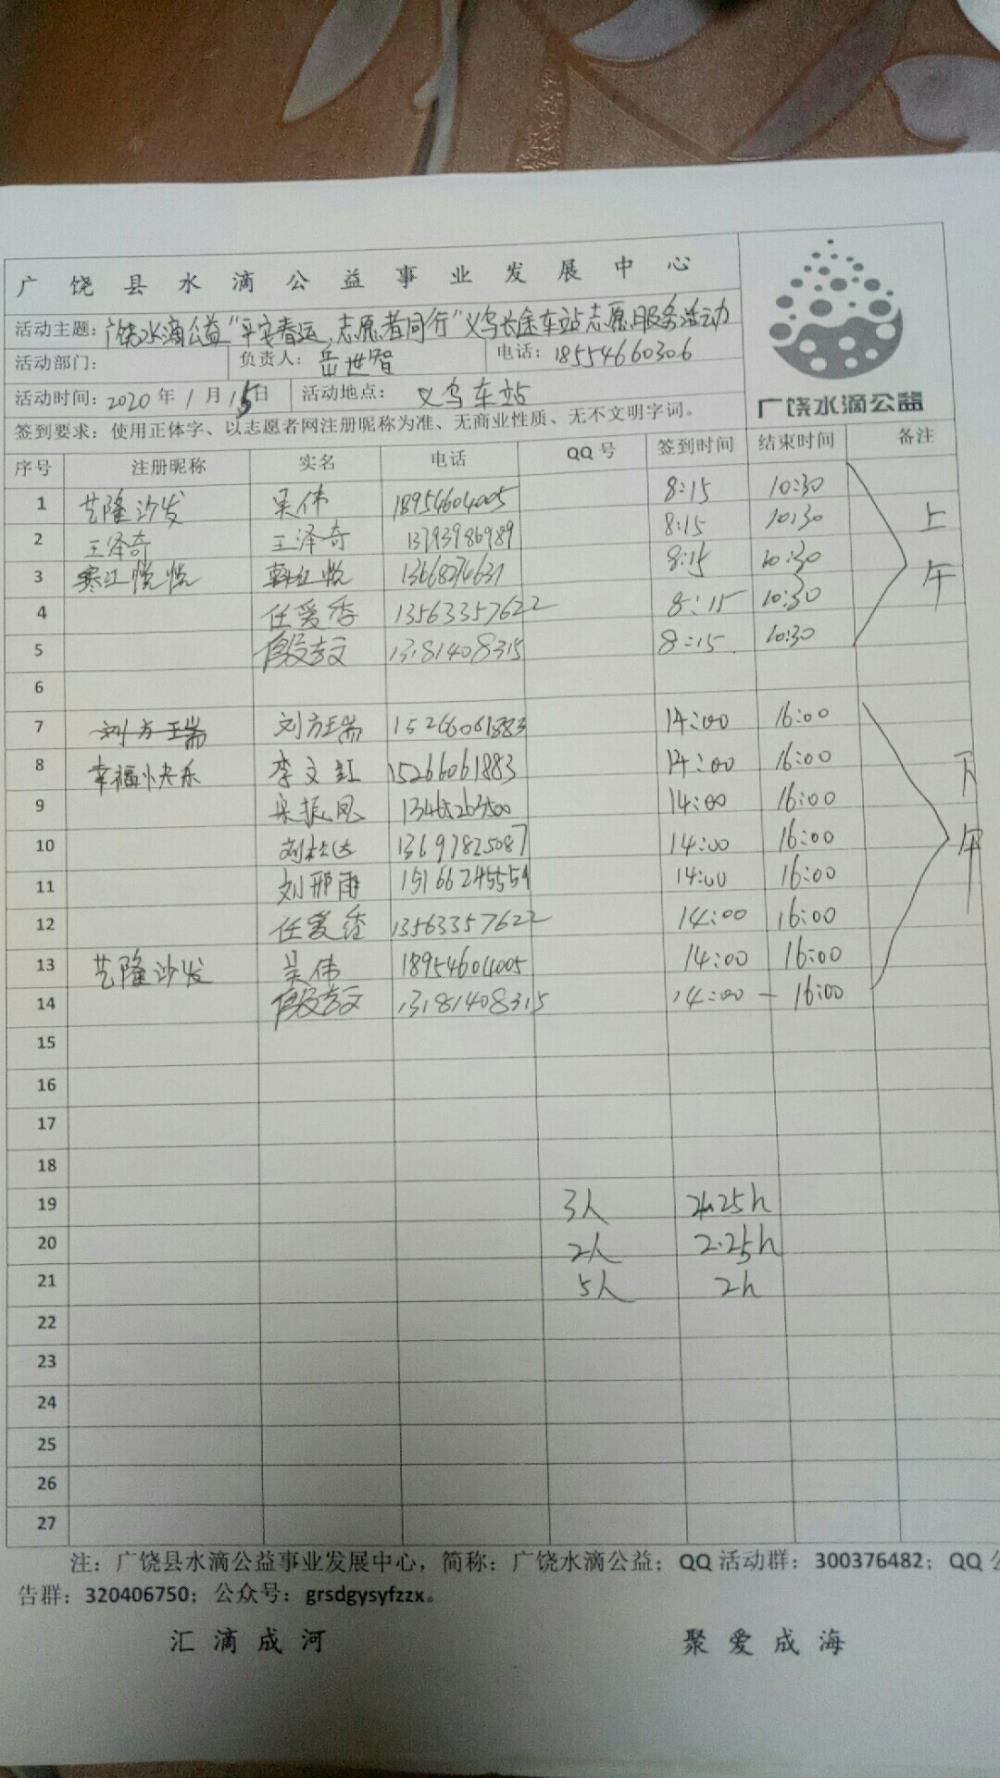 广饶县水滴公益事业发展中心
活动主题：广饶水滴公益"平安春运，志愿者同行"义乌长途车站志愿服务活动
活动部门： 负责人：岳世智 电话：18554660306
活动时间：2020年1月15日 活动地点：义乌车站
广饶水滴公益
签到要求：使用正体字、以志愿者网注册昵称为准、无商业性质、无不文明字词。
序号 注册昵称 实名 电话 QQ号 签到时间 结束时间 备注
1 艺隆沙发 吴伟 18954604005 8:15 10:30
2 王泽奇 王泽奇 8:15 10:30 上
3 寒江悦悦 韩红悦 8:15 10:30 午
4 任爱香 13563357622 8:15 10:30
5 段孝文 13181408315 8:15 10:30
6
7 刘方瑞 刘方瑞 15266061883 14:00 16:00
8 幸福快乐 李文红 15266061883 14:00 16:00 下
9 宋振凤 14:00 16:00
10 13697825087 14:00 16:00 午
11 刘邢雨 15166245554 14:00 16:00
12 任爱香 13563357622 14:00 16:00
13 艺隆沙发 吴伟 18954604005 14:00 16:00
14 段孝文 13181408315 14:00 — 16:00
15
16
17
18
19 3人 4.25h
20 2人 2.25h
21 5人 2h
22
23
24
25
26
27
注：广饶县水滴公益事业发展中心，简称：广饶水滴公益；QQ活动群：300376482；QQ公
告群：320406750；公众号：grsdgysyfzzx。
汇滴成河 聚爱成海